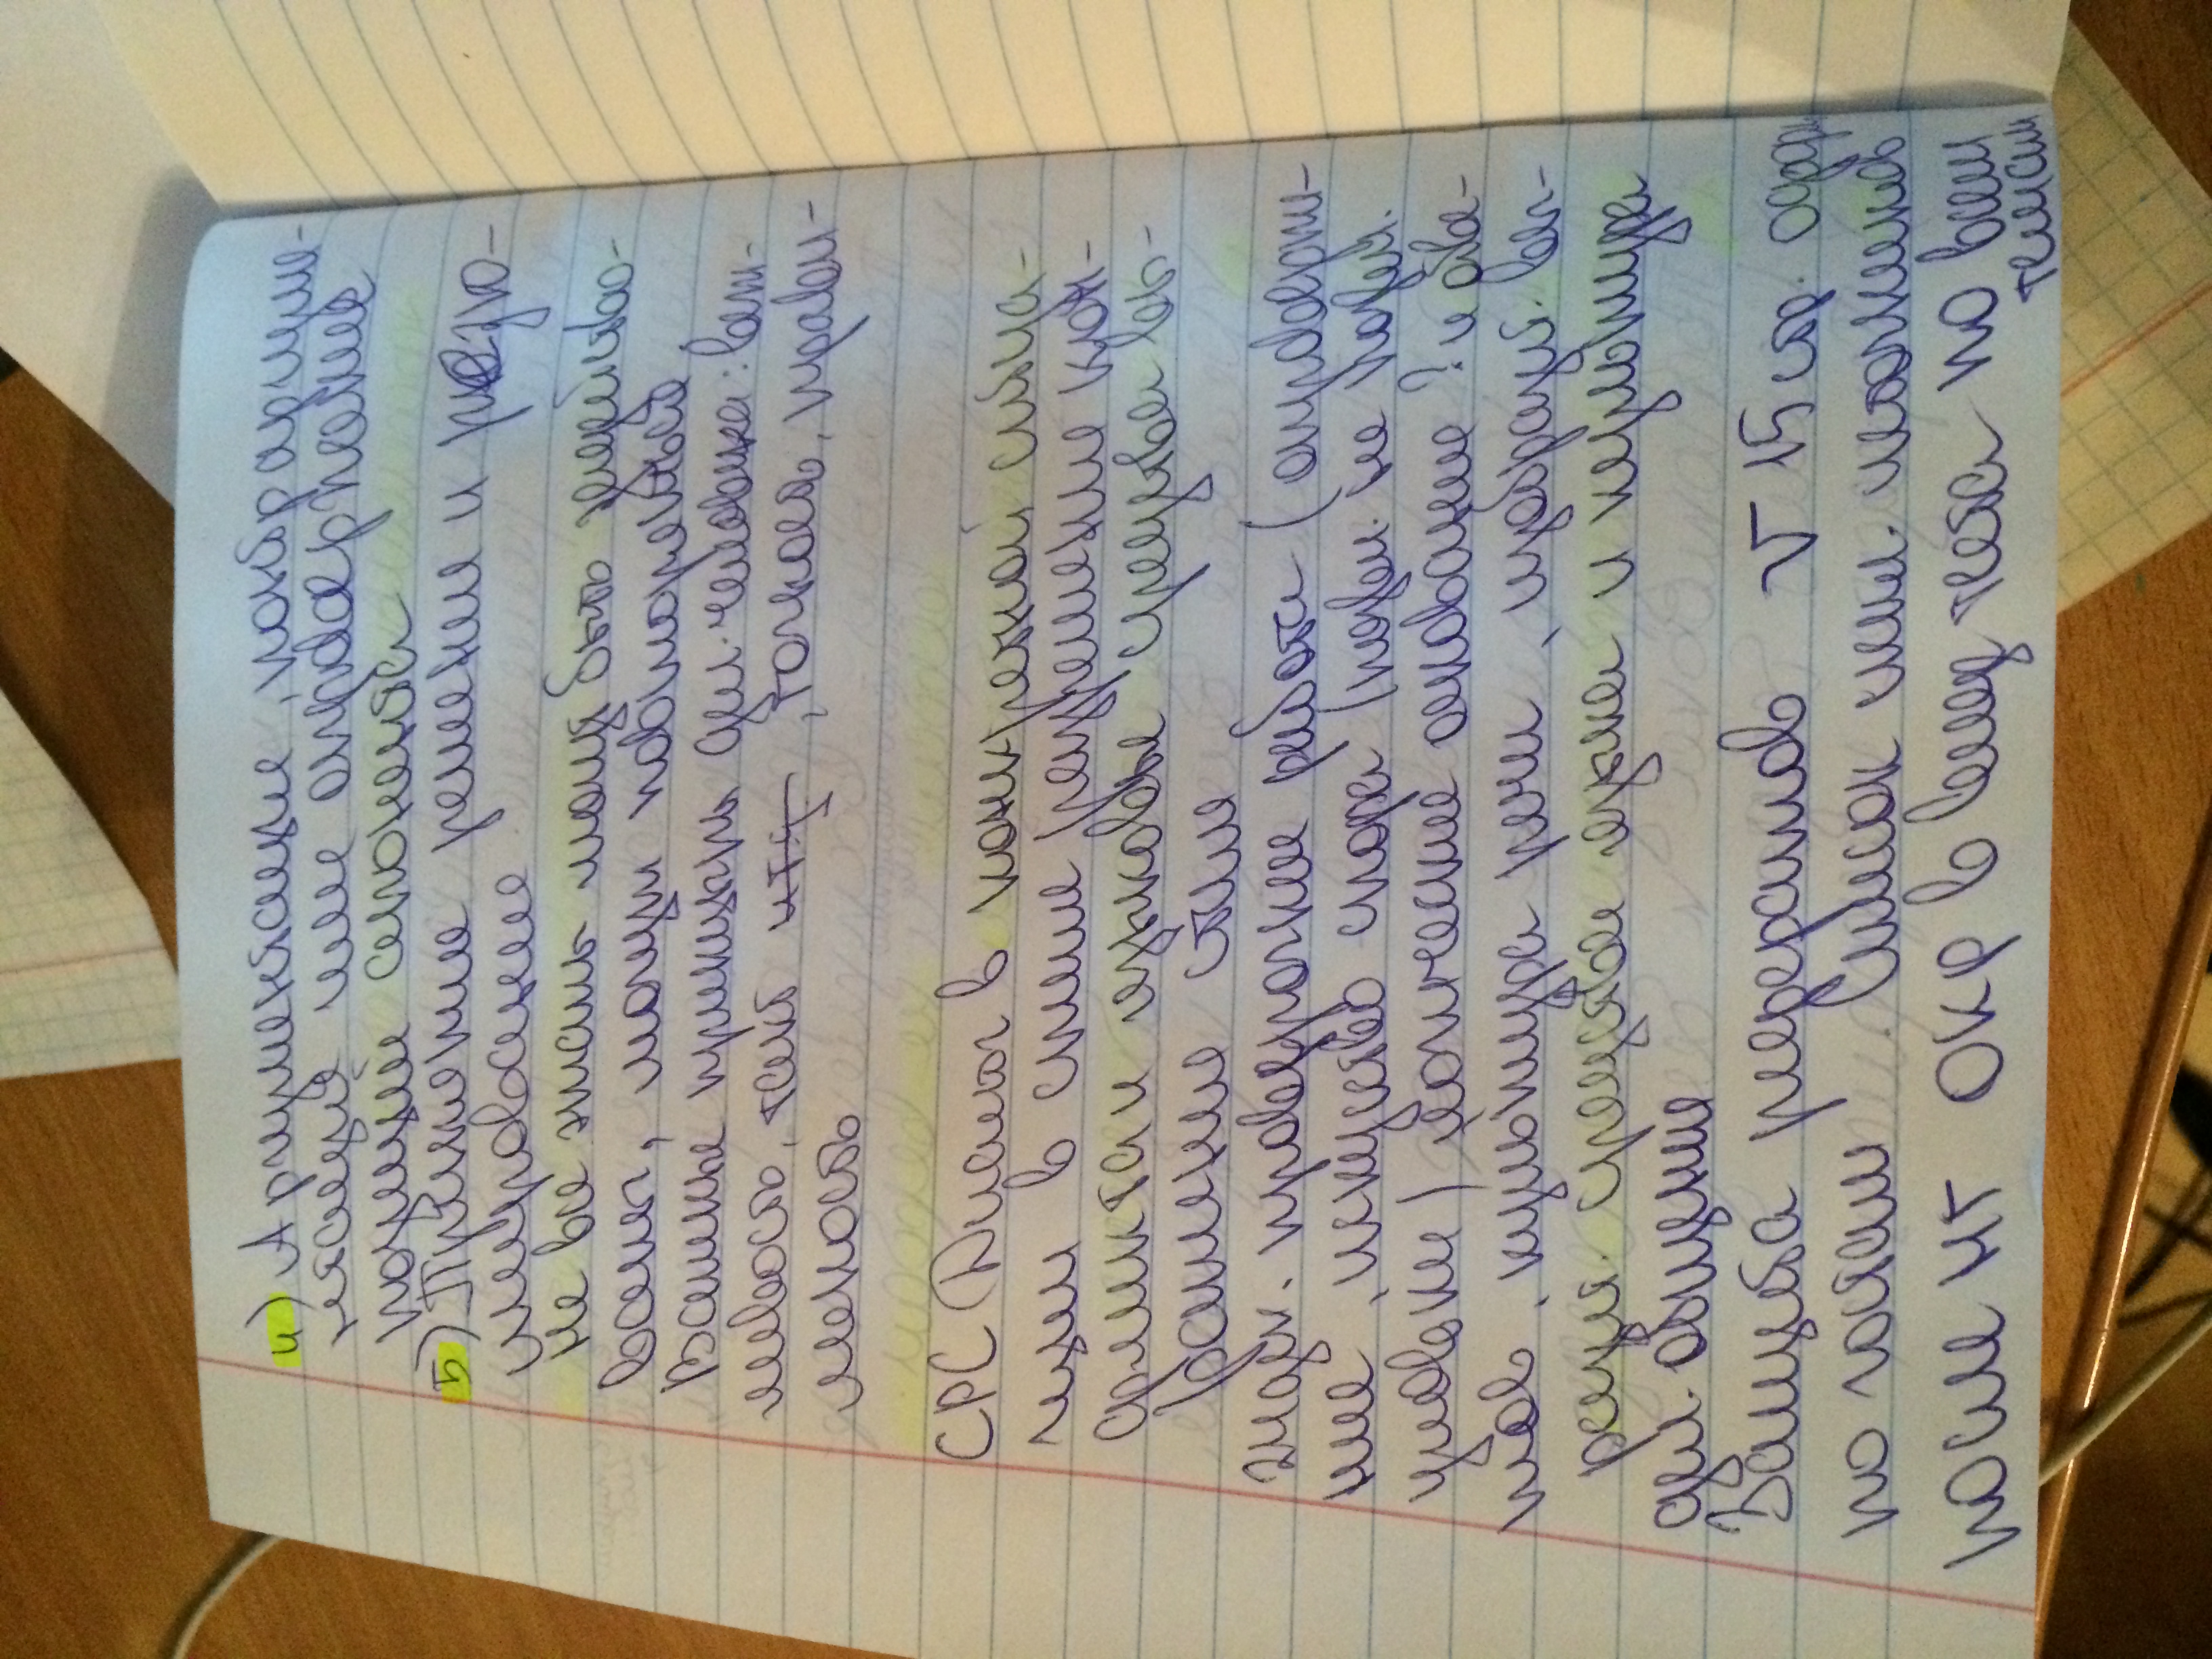 4) Аргументация, контраргуме-
нтация или опровержение
позиций опонента
5) Принятие решения и резю-
мирование
Не все этапы могут быть задейство-
ваны, могут повторяться.
Важные принципы дел. человека: веж-
ливость, такт итд, точность, прави-
льность
СРС Диалог в конкретной ситуа-
ции в стиле разрешение кон-
фликта и языковые средства вы-
ражения стиля
проверочные работа (опроверже-
ние, искусство спора (позвол. не позвол.
уловки) логические основание ? и отве-
тов, культура речи, изобразит. вы-
разит. средства языка и культура
дел. общения
Защита рефератов √ 15 стр. оформ
по гостам. Список источников
После НГ ОКР в виде теста по всем
темам